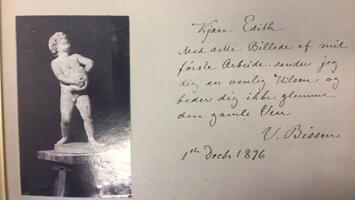 Kjære Edith
Med dette Billede af mit
første Arbeide sender jeg
dig en venlig Hilsen og
beder dig ikke glemme
den gamle Ven
V. Bissen
1ste Decbr 1896